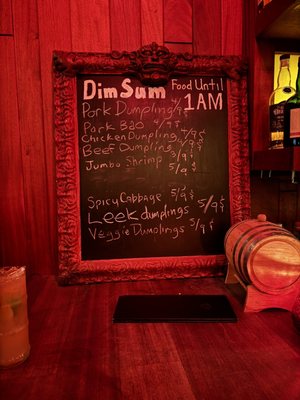 Dim Sum Food Until
1AM
Pork Dumpling 4/9 $
Pork Bao 4/9 $
Chicken Dumpling 5/9 $
Beef Dumpling 5/9 $
Jumbo Shrimp 5/9 $
5/9 $
Spicy Cabbage 5/9 $
Leek dumplings 5/9 $
Veggie Dumplings 5/9 $